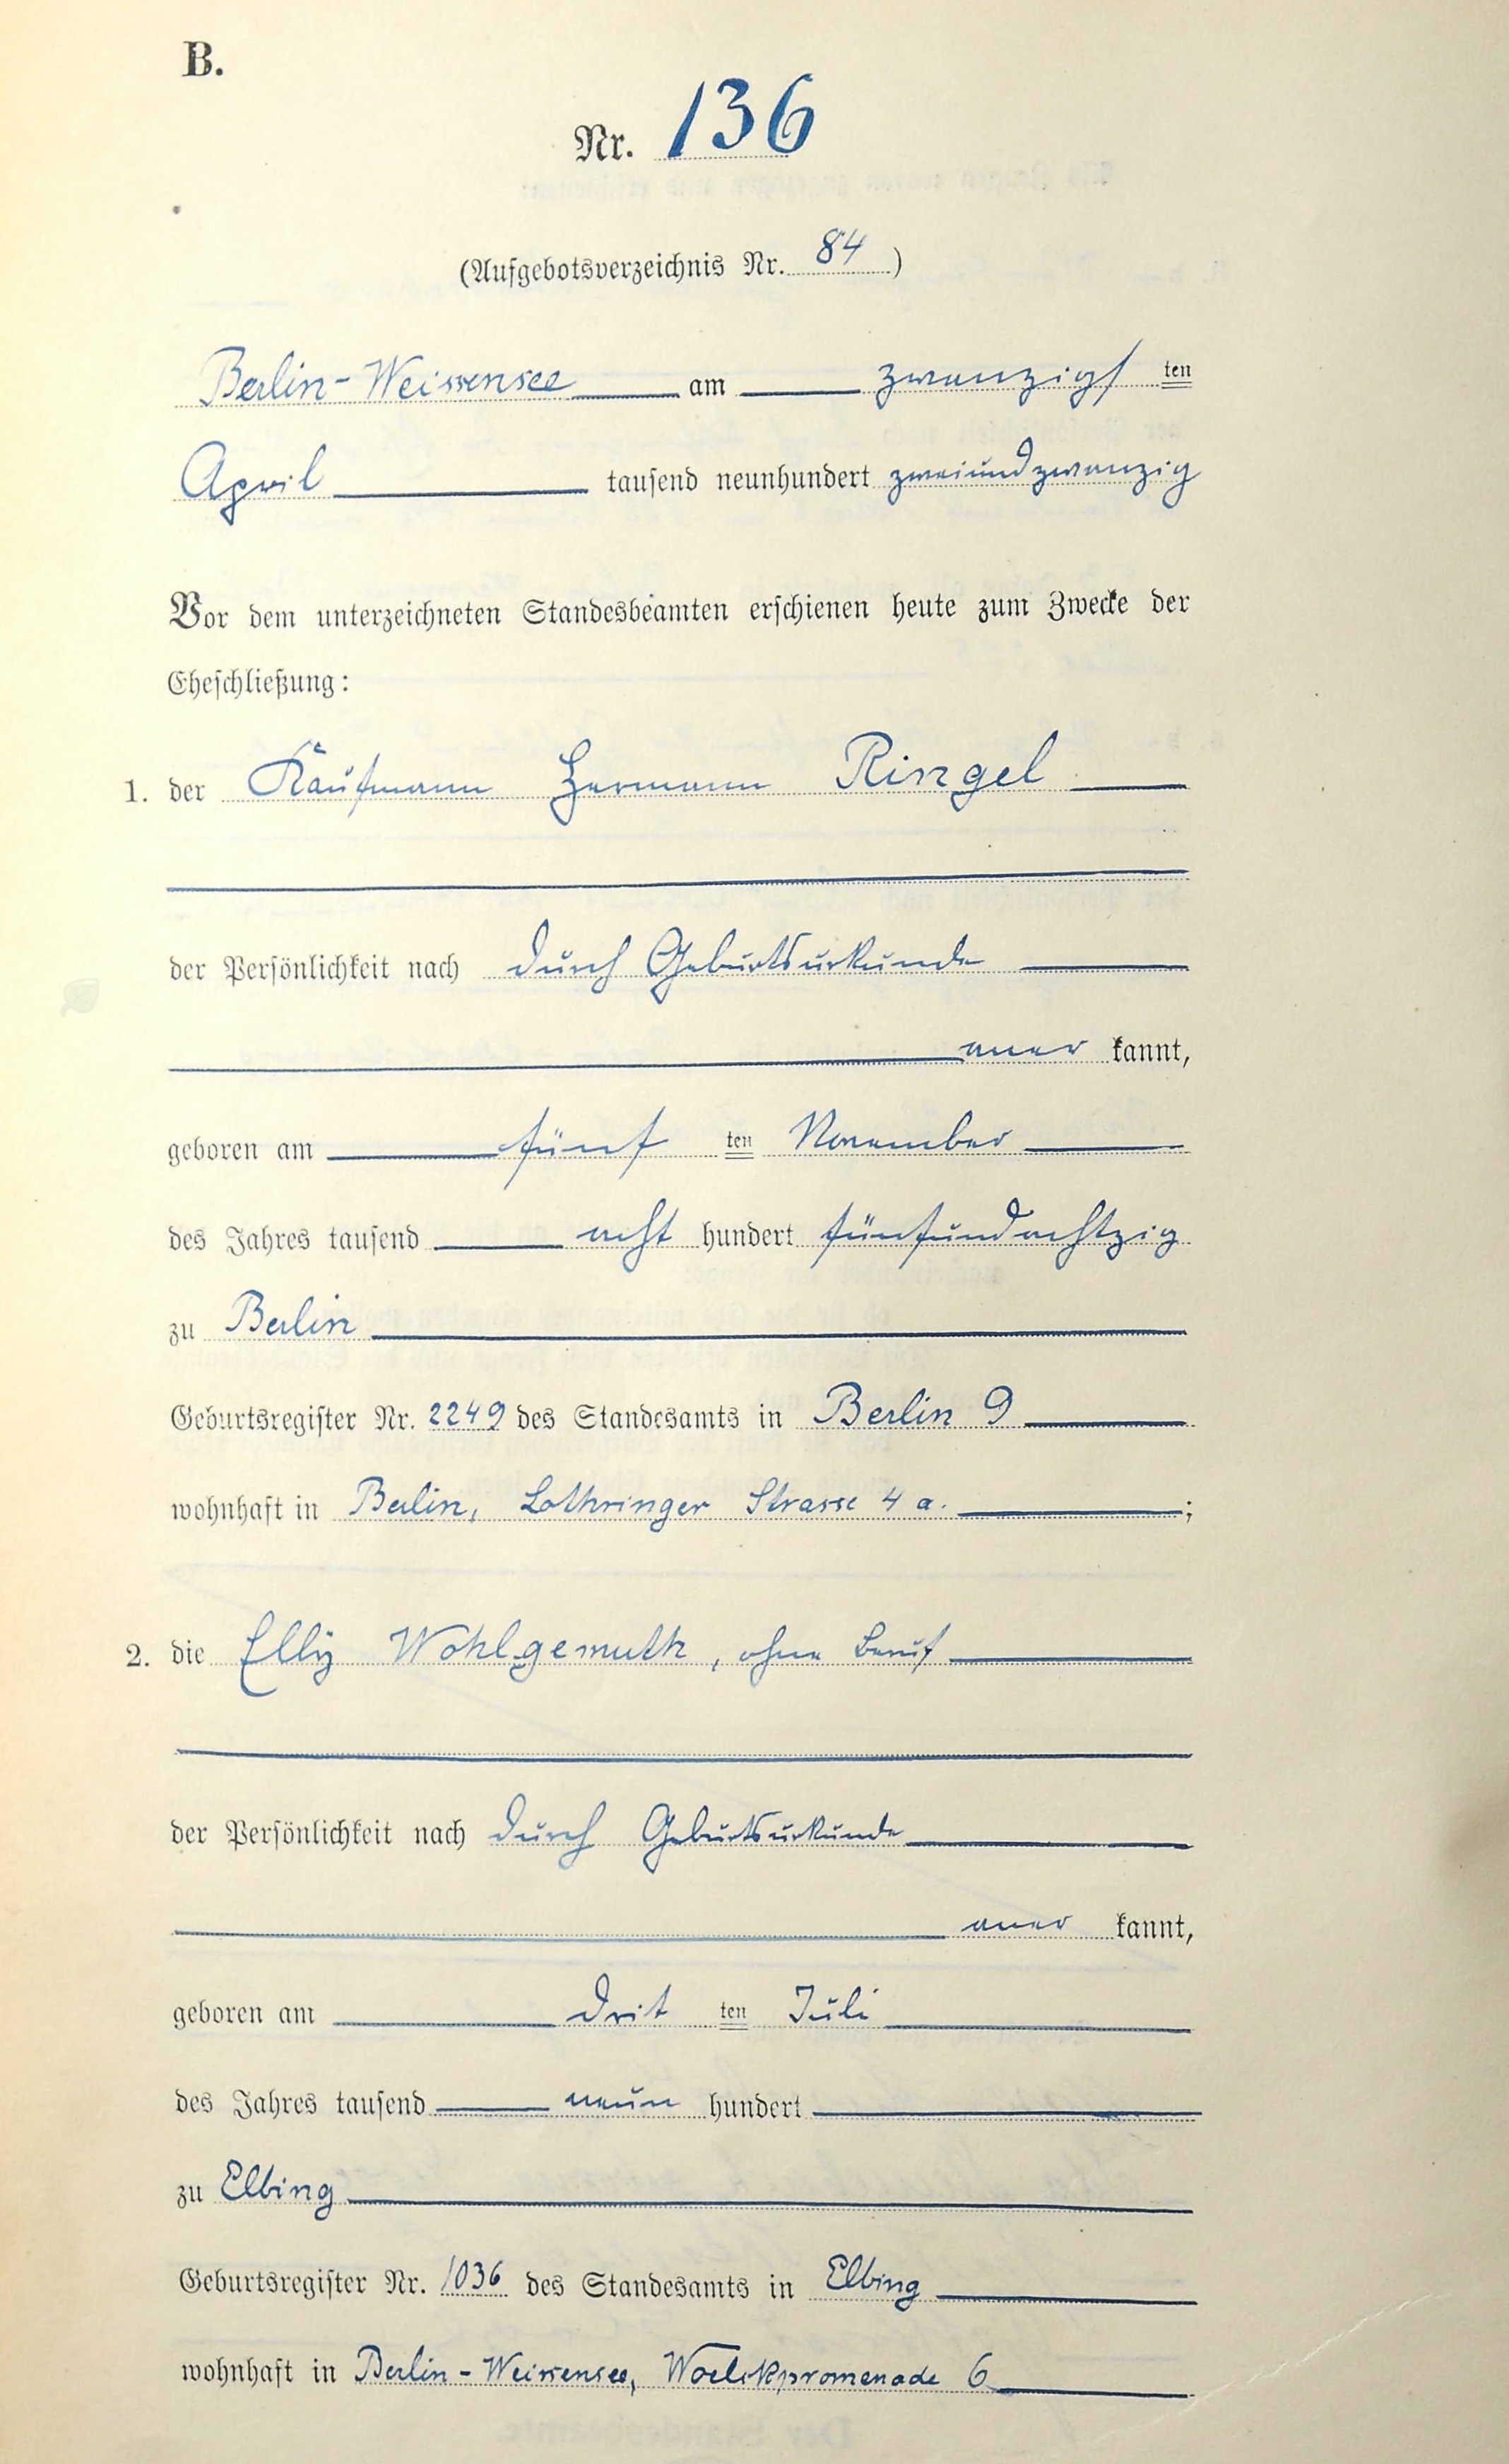 B.
Nr. 136
(Aufgebotsverzeichnis Nr. 84)
Berlin-Weissensee am zwanzigsten
April tausend neunhundert zweiundzwanzig
Vor dem unterzeichneten Standesbeamten erschienen heute zum Zwecke der
Eheschließung:
1. der Kaufmann Hermann Ringel
der Persönlichkeit nach durch Geburtsurkunde
aner kannt,
geboren am fünf ten November
des Jahres tausend acht hundert fünfundachtzig
zu Berlin
Geburtsregister Nr. 2249 des Standesamts in Berlin 9
wohnhaft in Berlin, Lothringer Strasse 4 a.;
2. die Elly Wohlgemuth, ohne Beruf
der Persönlichkeit nach durch Geburtsurkunde
aner kannt,
geboren am drit ten Juli
des Jahres tausend neun hundert
zu Elbing
Geburtsregister Nr. 1036 des Standesamts in Elbing
wohnhaft in Berlin-Weissensee, Woelckpromenade 6.